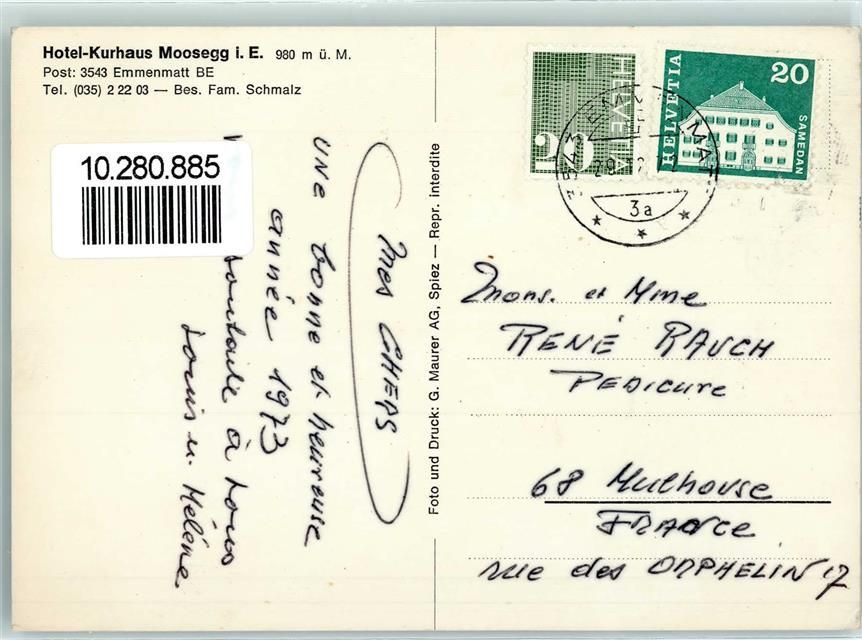 Hotel-Kurhaus Moosegg i. E. 980 m ü. M.
Post: 3543 Emmenmatt BE
Tel. (035) 2 22 03 — Bes. Fam. Schmalz
10.280.885
Mes CHERS
UNE bonne et heureuse
année 1973
souhaite à tous
Louis u. Hélène.
Foto und Druck: G. Maurer AG, Spiez — Repr. interdite
HELVETIA
20
HELVETIA
20
SAMEDAN
3543
3a
Mons. et Mme
RENÉ RAUCH
PEDICURE
68 Mulhouse
FRANCE
rue des ORPHELIN 17